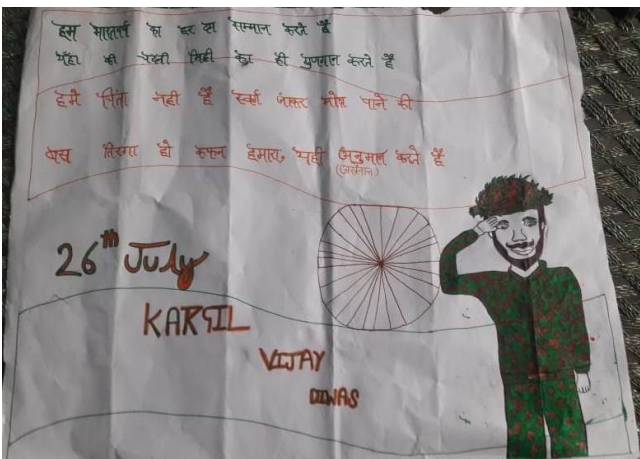 हम भारतवर्ष का हर दम सम्मान करते हैं
यहाँ की रेतली मिट्टी का ही गुणगान करते हैं
हमे चिंता नही है स्वर्ग जाकर मोक्ष पाने की
बस तिरंगा हो कफन हमारा, यही अनुमान करते है
(अरमान)
26th July
KARGIL
VIJAY
DIWAS